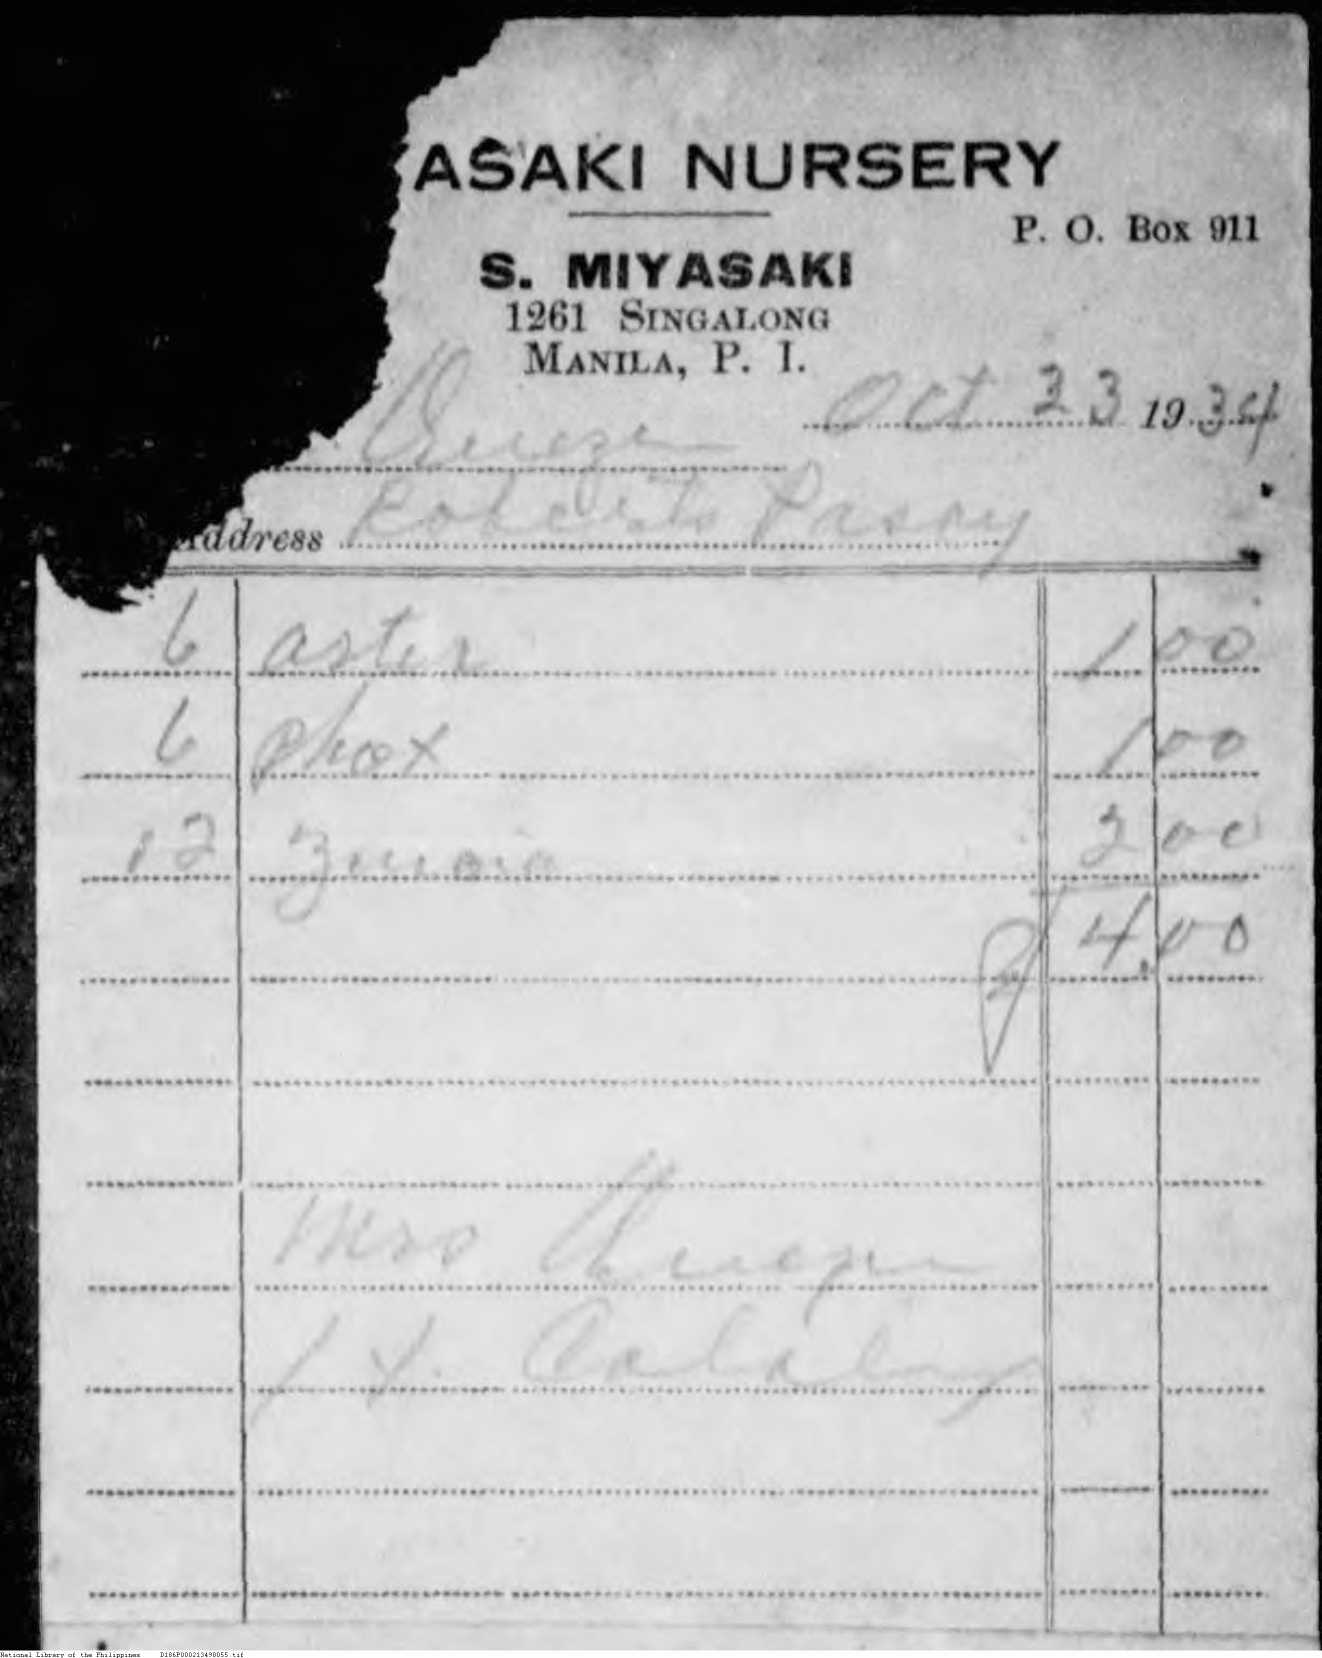 YASAKI NURSERY
P. O. Box 911
S. MIYASAKI
1261 SINGALONG
MANILA, P. I.
Oct 23 1934
Quezon
Address Roberts Pasay
6 aster 1 00
6 phox 1 00
12 Zinnia 2 00
4.00
Mrs Quezon
National Library of the Philippines D186P000213498055.tif